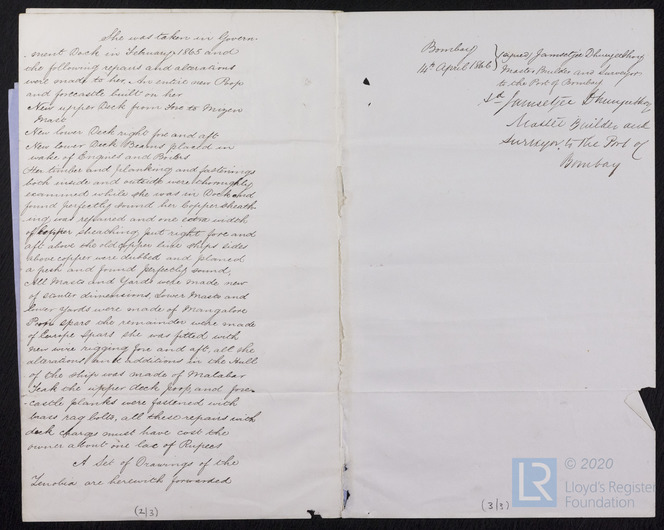 She was taken in Govern
-ment Dock in February 1865 and
the following repairs and alterations
were made to her, An entire new Poop
and forecastle built on her
New upper Deck from Fore to Mizen
Mast
New lower Deck right fore and aft
New lower Deck Beams placed in
wake of Engines and Boilers
Her timber and planking and fastenings
both inside and outside were thoroughly
examined while she was in Dock and
found perfectly sound her Copper sheath
-ing was repaired and one extra width
of Copper sheathing put right fore and
aft above the old Copper line ships sides
above copper were dubbed and planed
a fresh and found perfectly sound,
All Masts and Yards were made new
of same dimensions, Lower Masts and
lower Yards were made of Mangalore
Poon spars the remainder were made
of Europe spars she was fitted with
new wire rigging fore and aft, all the
alterations and additions in the Hull
of the ship was made of Malabar
Teak the upper deck poop and fore
-castle planks were fastened with
brass rag bolts, all these repairs with
dock charges must have cost the
owner about one lac of Rupees
A Set of Drawings of the
Zenobia are herewith forwarded
(2/3)
Bombay
14th April 1866
signed, Jamsetjee Dhunjeebhoy
Master Builder and Surveyor
to the Port of Bombay
Sd Jamsetjee Dhunjeebhoy
Master Builder and
Surveyor to the Port of
Bombay
(3/3)
LR © 2020
Lloyd's Register
Foundation